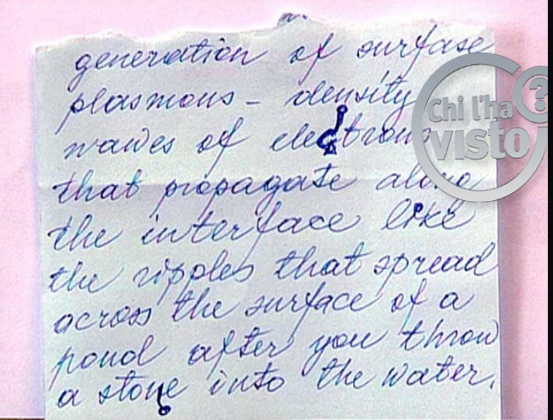 generation of surfase
plasmons – density
waves of electrons
that propagate along
the interface like
the ripples that spread
across the surface of a
pond after you throw
a stone into the water.
Chi l'ha
visto ?